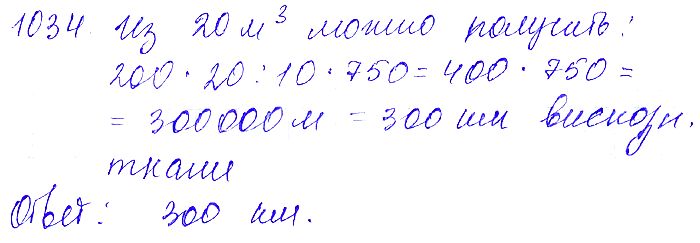 1034. Из 20 м³ можно получить:
200 · 20 : 10 · 750 = 400 · 750 =
= 300000 м = 300 км вискозн.
ткани
Ответ: 300 км.